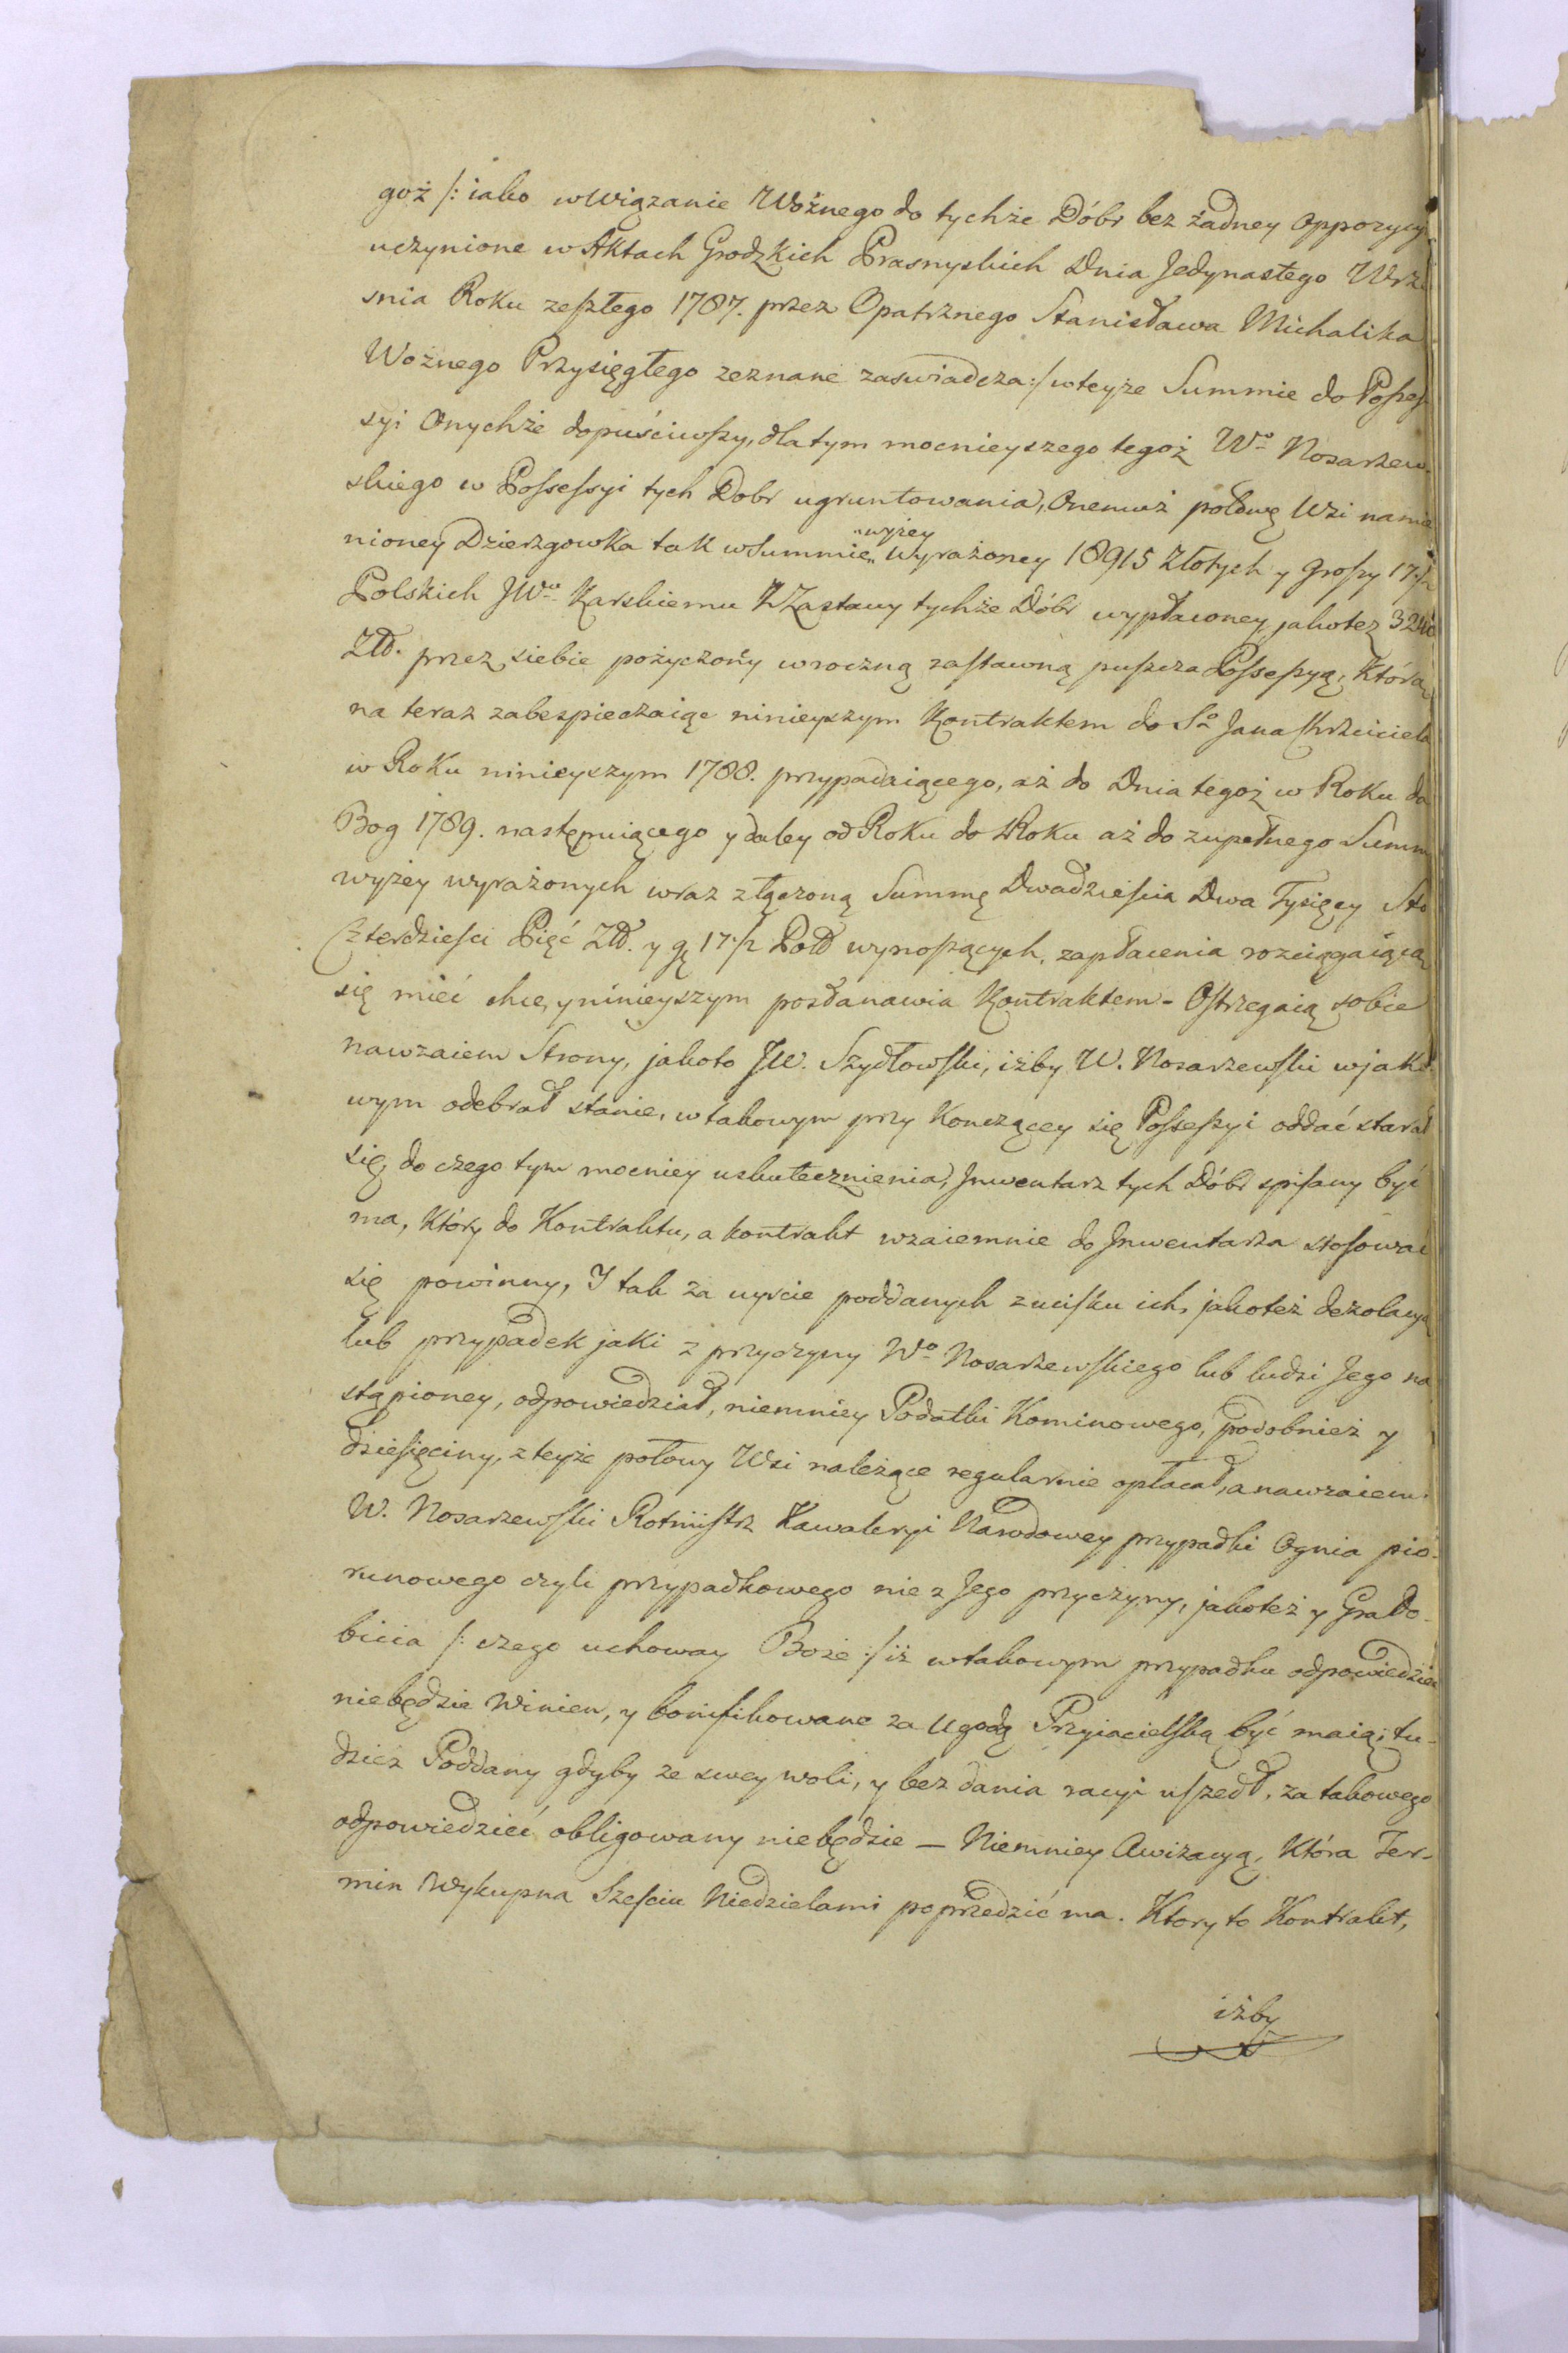 goż /: iako wWiązanie Woźnego do tychże Dóbr bez żadney Oppozycyi
uczynione w Aktach Grodzkich Prasnyskich Dnia Jedynastego Wrze
snia Roku zeszłego 1787. przez Opatrznego Stanisława Michalika
Woznego Przysięgłego zeznane zaswiadcza :/ wteyże Summie do Possess
syi Onychże dopuściwszy, dla tym mocnieyszego tegoż Wo Nosarzew
skiego w Possessyi tych Dobr ugruntowania, Onemuż połowę Wsi namie
nioney Dzierzgowka tak wSummie „wyżey„ wyrażoney 18915 Złotych y Groszy 17 1/2
Polskich JWo Karskiemu z Zastawy tychże Dóbr wypłaconey, jakoteż 3230
Złł. przez siebie pożyczoney wroczną zastawną puszcza Possessyą, Którą
na teraz zabespieczaiąc ninieyszym Kontraktem do So Jana Chrzciciela
w Roku ninieyszym 1788. przypadaiącego, aż do Dnia tegoż w Roku da
Bog 1789. następuiącego y daley od Roku do Roku aż do zupełnego Summ
wyżey wyrażonych wraz złączoną Summę Dwadzieścia Dwa Tysięcy Sto
Czterdziesci Pięć Złł. y gę 17 1/2 Poll wynoszących, zapłacenia rozciągaiącą
się mieć chce, y ninieyszym postanawia Kontraktem - Ostrzegaią sobie
nawzaiem Strony, jakoto JW. Szydłowski, iżby W. Nosarzewski wjako
wym odebrał stanie, w takowym przy Konczącey się Possessyi oddać starał
się, do czego tym mocniey uskutecznienia, Jnwentarz tych Dóbr spisany być
ma, Który do Kontraktu, a kontrakt wzaiemnie do Jnwentarza stosowac
się powinny, I tak za uyscie poddanych zucisku ich, jakoteż dezolacyą
lub przypadek jaki z przyczyny Wo Nosarzewskiego lub ludzi Jego na
stąpioney, odpowiedział, niemniey Podatki Kominowego, podobnież y
dziesięciny, z teyże połowy Wsi należące regularnie opłacał, a nawzaiem
W. Nosarzewski Rotmistrz Kawaleryi Narodowey przypadki Ognia pio-
runowego czyli przypadkowego nie z Jego przyczyny, jakoteż y Grado-
bicia /: czego uchoway Boże :/ iż wtakowym przypadku odpowiedzieć
niebędzie winien, y bonifikowane za ugodą Przyiacielską być maią; tu-
dzież Poddany gdyby ze swey woli, y bez dania racyi uszedł, za takowego
odpowiedzieć obligowany niebędzie — Niemniey Awizacyą, Która Ter-
min Wykupna Sześciu Niedzielami poprzedzić ma. Ktory to Kontrakt,
iżby